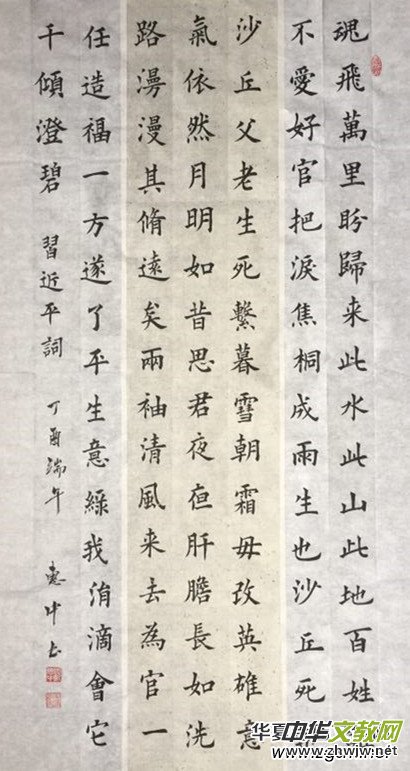 魂飛萬里盼歸来此水此山此地百姓
不愛好官把淚焦桐成雨生也沙丘死
沙丘父老生死繫暮雪朝霜毋改英雄意
氣依然月明如昔思君夜亱肝膽長如洗
路漫漫其脩遠矣兩袖清風来去為官一
任造福一方遂了平生意綠我涓滴會它
千傾澄碧 習近平詞 丁酉端午 惠中书
华夏中华文教网
www.zhwjw.net